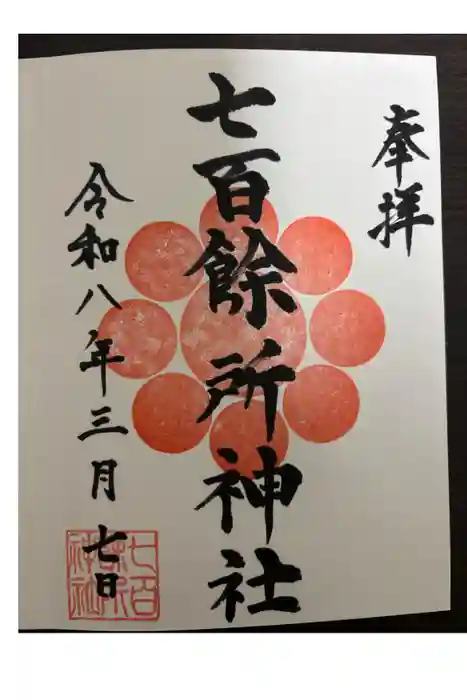 奉拝
七百餘所神社
令和八年三月七日
七百
餘所
神社